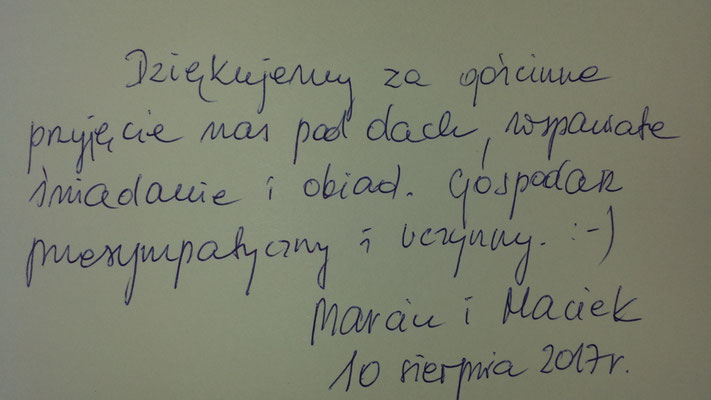 Dziękujemy za gościnne
przyjęcie nas pod dach, wspaniałe
śniadanie i obiad. Gospodarz
przesympatyczny i uczynny. :-)
Marcin i Maciek
10 sierpnia 2017r.